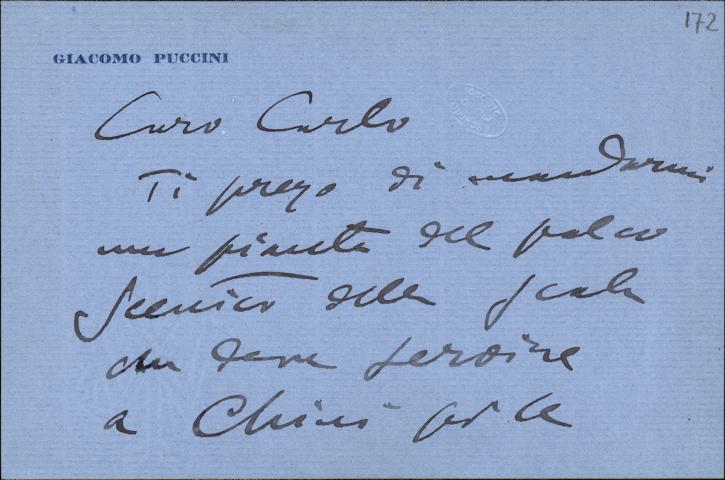 172
GIACOMO PUCCINI
Caro Carlo
Ti prego di mandarmi
una pianta del palco
scenico della Scala
che deve servire
a Chini per le